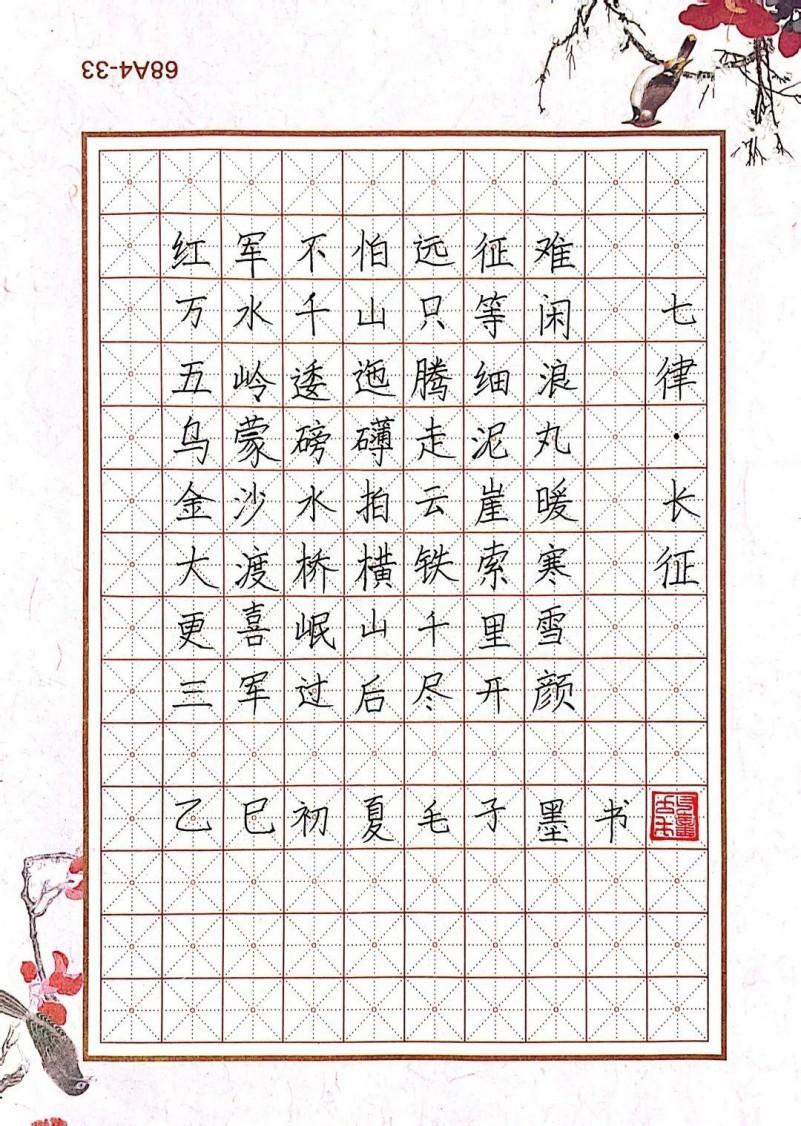 68A4-33
七律·长征
红军不怕远征难
万水千山只等闲
五岭逶迤腾细浪
乌蒙磅礴走泥丸
金沙水拍云崖暖
大渡桥横铁索寒
更喜岷山千里雪
三军过后尽开颜
乙巳初夏毛子墨书